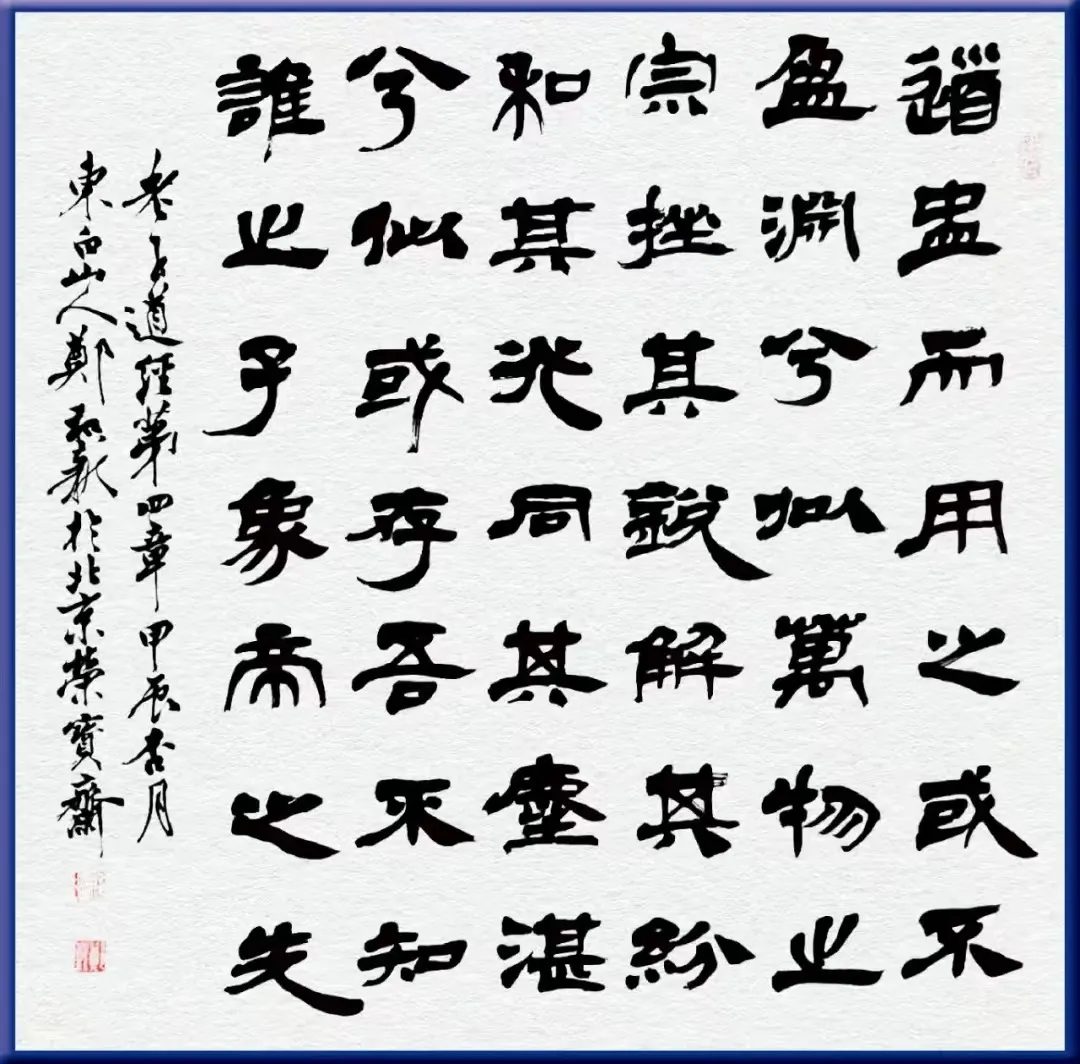 道盅而用之或不
盈淵兮似萬物之
宗挫其銳解其紛
和其光同其塵湛
兮似或存吾不知
誰之子象帝之先
老子道經第四章甲辰杏月
東白山人鄭新於北京榮寶齋